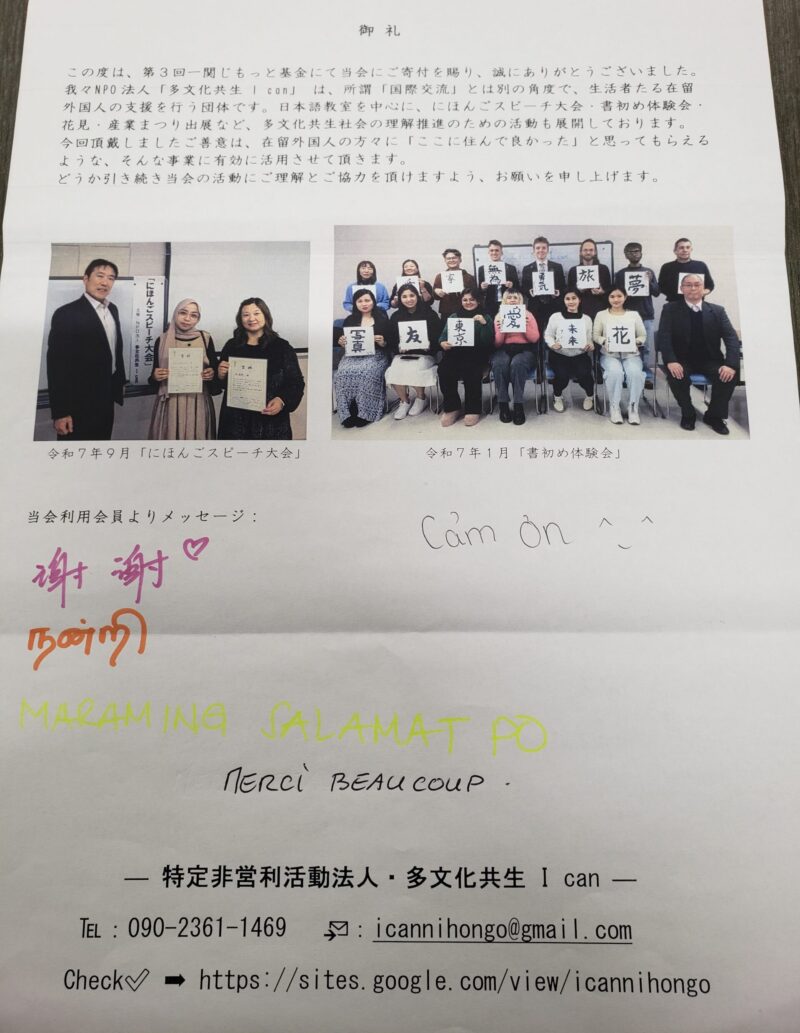 御礼
この度は、第3回一関じもっと基金にて当会にご寄付を賜り、誠にありがとうございました。
我々NPO法人「多文化共生 I can」 は、所謂「国際交流」とは別の角度で、生活者たる在留
外国人の支援を行う団体です。日本語教室を中心に、にほんごスピーチ大会・書初め体験会・
花見・産業まつり出展など、多文化共生社会の理解推進のための活動も展開しております。
今回頂戴しましたご善意は、在留外国人の方々に「ここに住んで良かった」と思ってもらえる
ような、そんな事業に有効に活用させて頂きます。
どうか引き続き当会の活動にご理解とご協力を頂けますよう、お願いを申し上げます。
「にほんごスピーチ大会」
無為
勇気
旅
夢
写真
友
東京
愛
未来
花
令和7年9月「にほんごスピーチ大会」
令和7年1月「書初め体験会」
当会利用会員よりメッセージ:
Cảm ơn ^_^
谢谢♡
நன்றி
MARAMING SALAMAT PO
MERCI BEAUCOUP.
― 特定非営利活動法人・多文化共生 I can ―
℡:090-2361-1469 :icannihongo@gmail.com
Check✓ ➡ https://sites.google.com/view/icannihongo